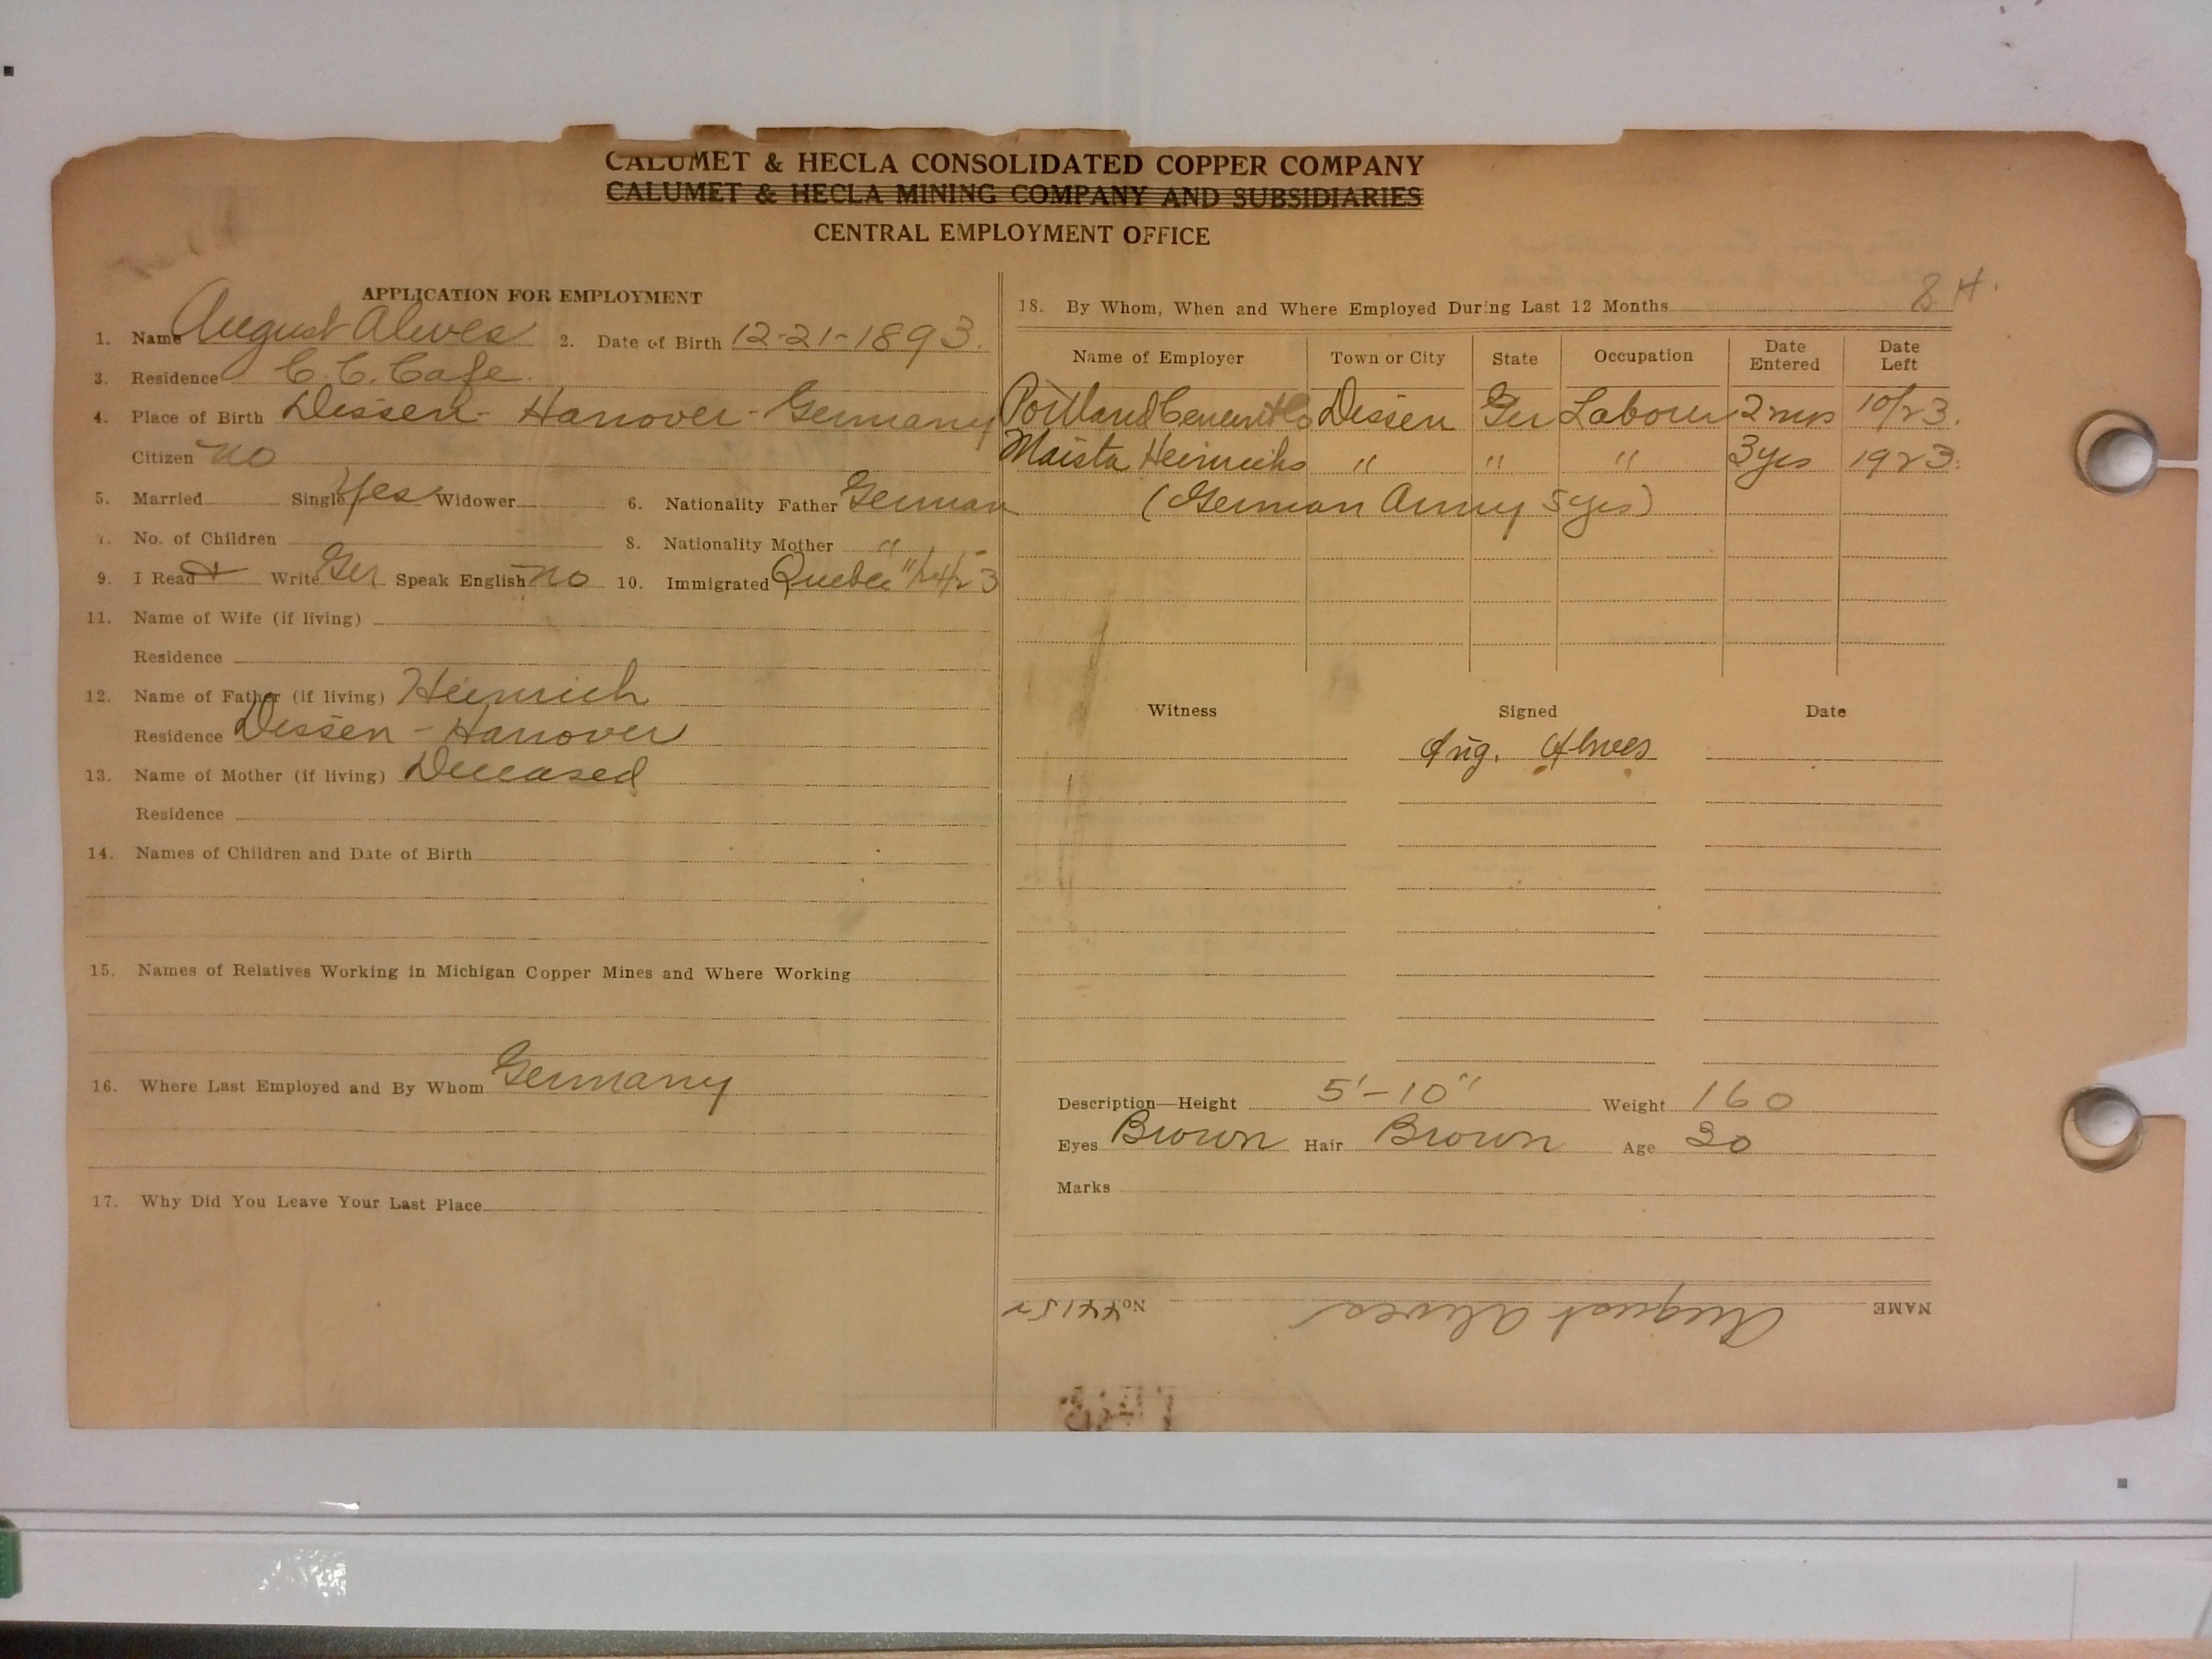 CALUMET & HECLA CONSOLIDATED COPPER COMPANY
CALUMET & HECLA MINING COMPANY AND SUBSIDIARIES
CENTRAL EMPLOYMENT OFFICE
APPLICATION FOR EMPLOYMENT
1. Name August Alwes 2. Date of Birth 12-21-1893.
3. Residence C.C. Cafe
4. Place of Birth Dissen - Hanover - Germany
Citizen no
5. Married Single Yes Widower 6. Nationality Father German
7. No. of Children 8. Nationality Mother "
9. I Read + Write Ger Speak English no 10. Immigrated Quebec 11/24/23
11. Name of Wife (if living)
Residence
12. Name of Father (if living) Heinrich
Residence Dissen - Hanover
13. Name of Mother (if living) Deceased
Residence
14. Names of Children and Date of Birth
15. Names of Relatives Working in Michigan Copper Mines and Where Working
16. Where Last Employed and By Whom Germany
17. Why Did You Leave Your Last Place
18. By Whom, When and Where Employed During Last 12 Months 8 H.
Name of Employer Town or City State Occupation Date Entered Date Left
Portland Cement Co Dissen Ger Laborer 2 mos 10/23.
Heinrichs " " " 3 yrs 1923.
(German Army 5 yrs)
Witness Signed Date
Aug. Alwes
Description—Height 5'-10" Weight 160
Eyes Brown Hair Brown Age 30
Marks
NAME August Alwes No 44152